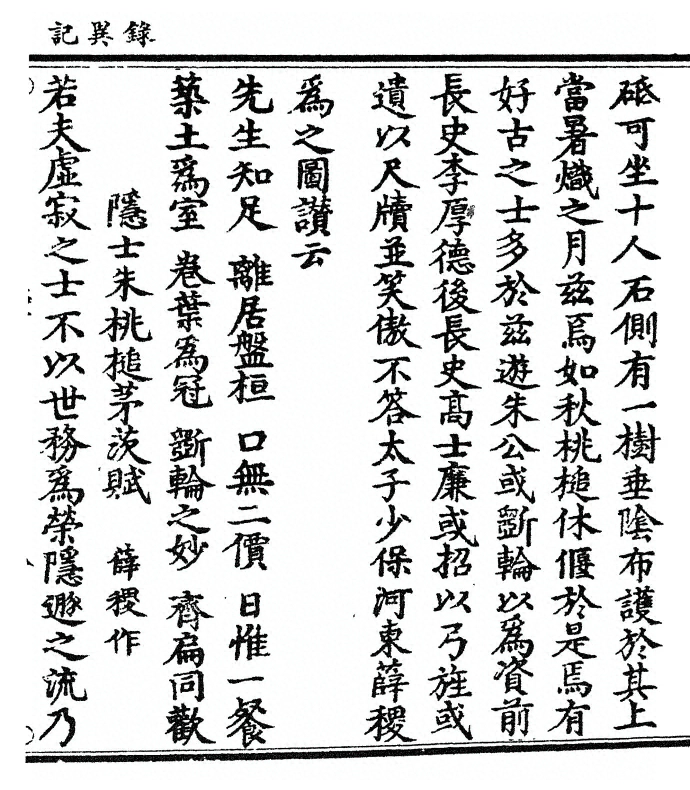 記異錄
砥可坐十人石側有一樹垂陰布護於其上
當暑熾之月兹焉如秋桃槌休偃於是焉有
好古之士多於兹遊朱公或斵輪以爲資前
長史李厚德後長史高士廉或招以弓旌或
遺以尺牘並笑傲不答太子少保河東薛稷
爲之圖讃云
先生知足 離居盤桓 口無二價 日惟一餐
築土爲室 卷葉爲冠 斵輪之妙 齊扁同歡
隱士朱桃槌茅茨賦 薛稷作
若夫虛寂之士不以世務爲榮隱遯之流乃